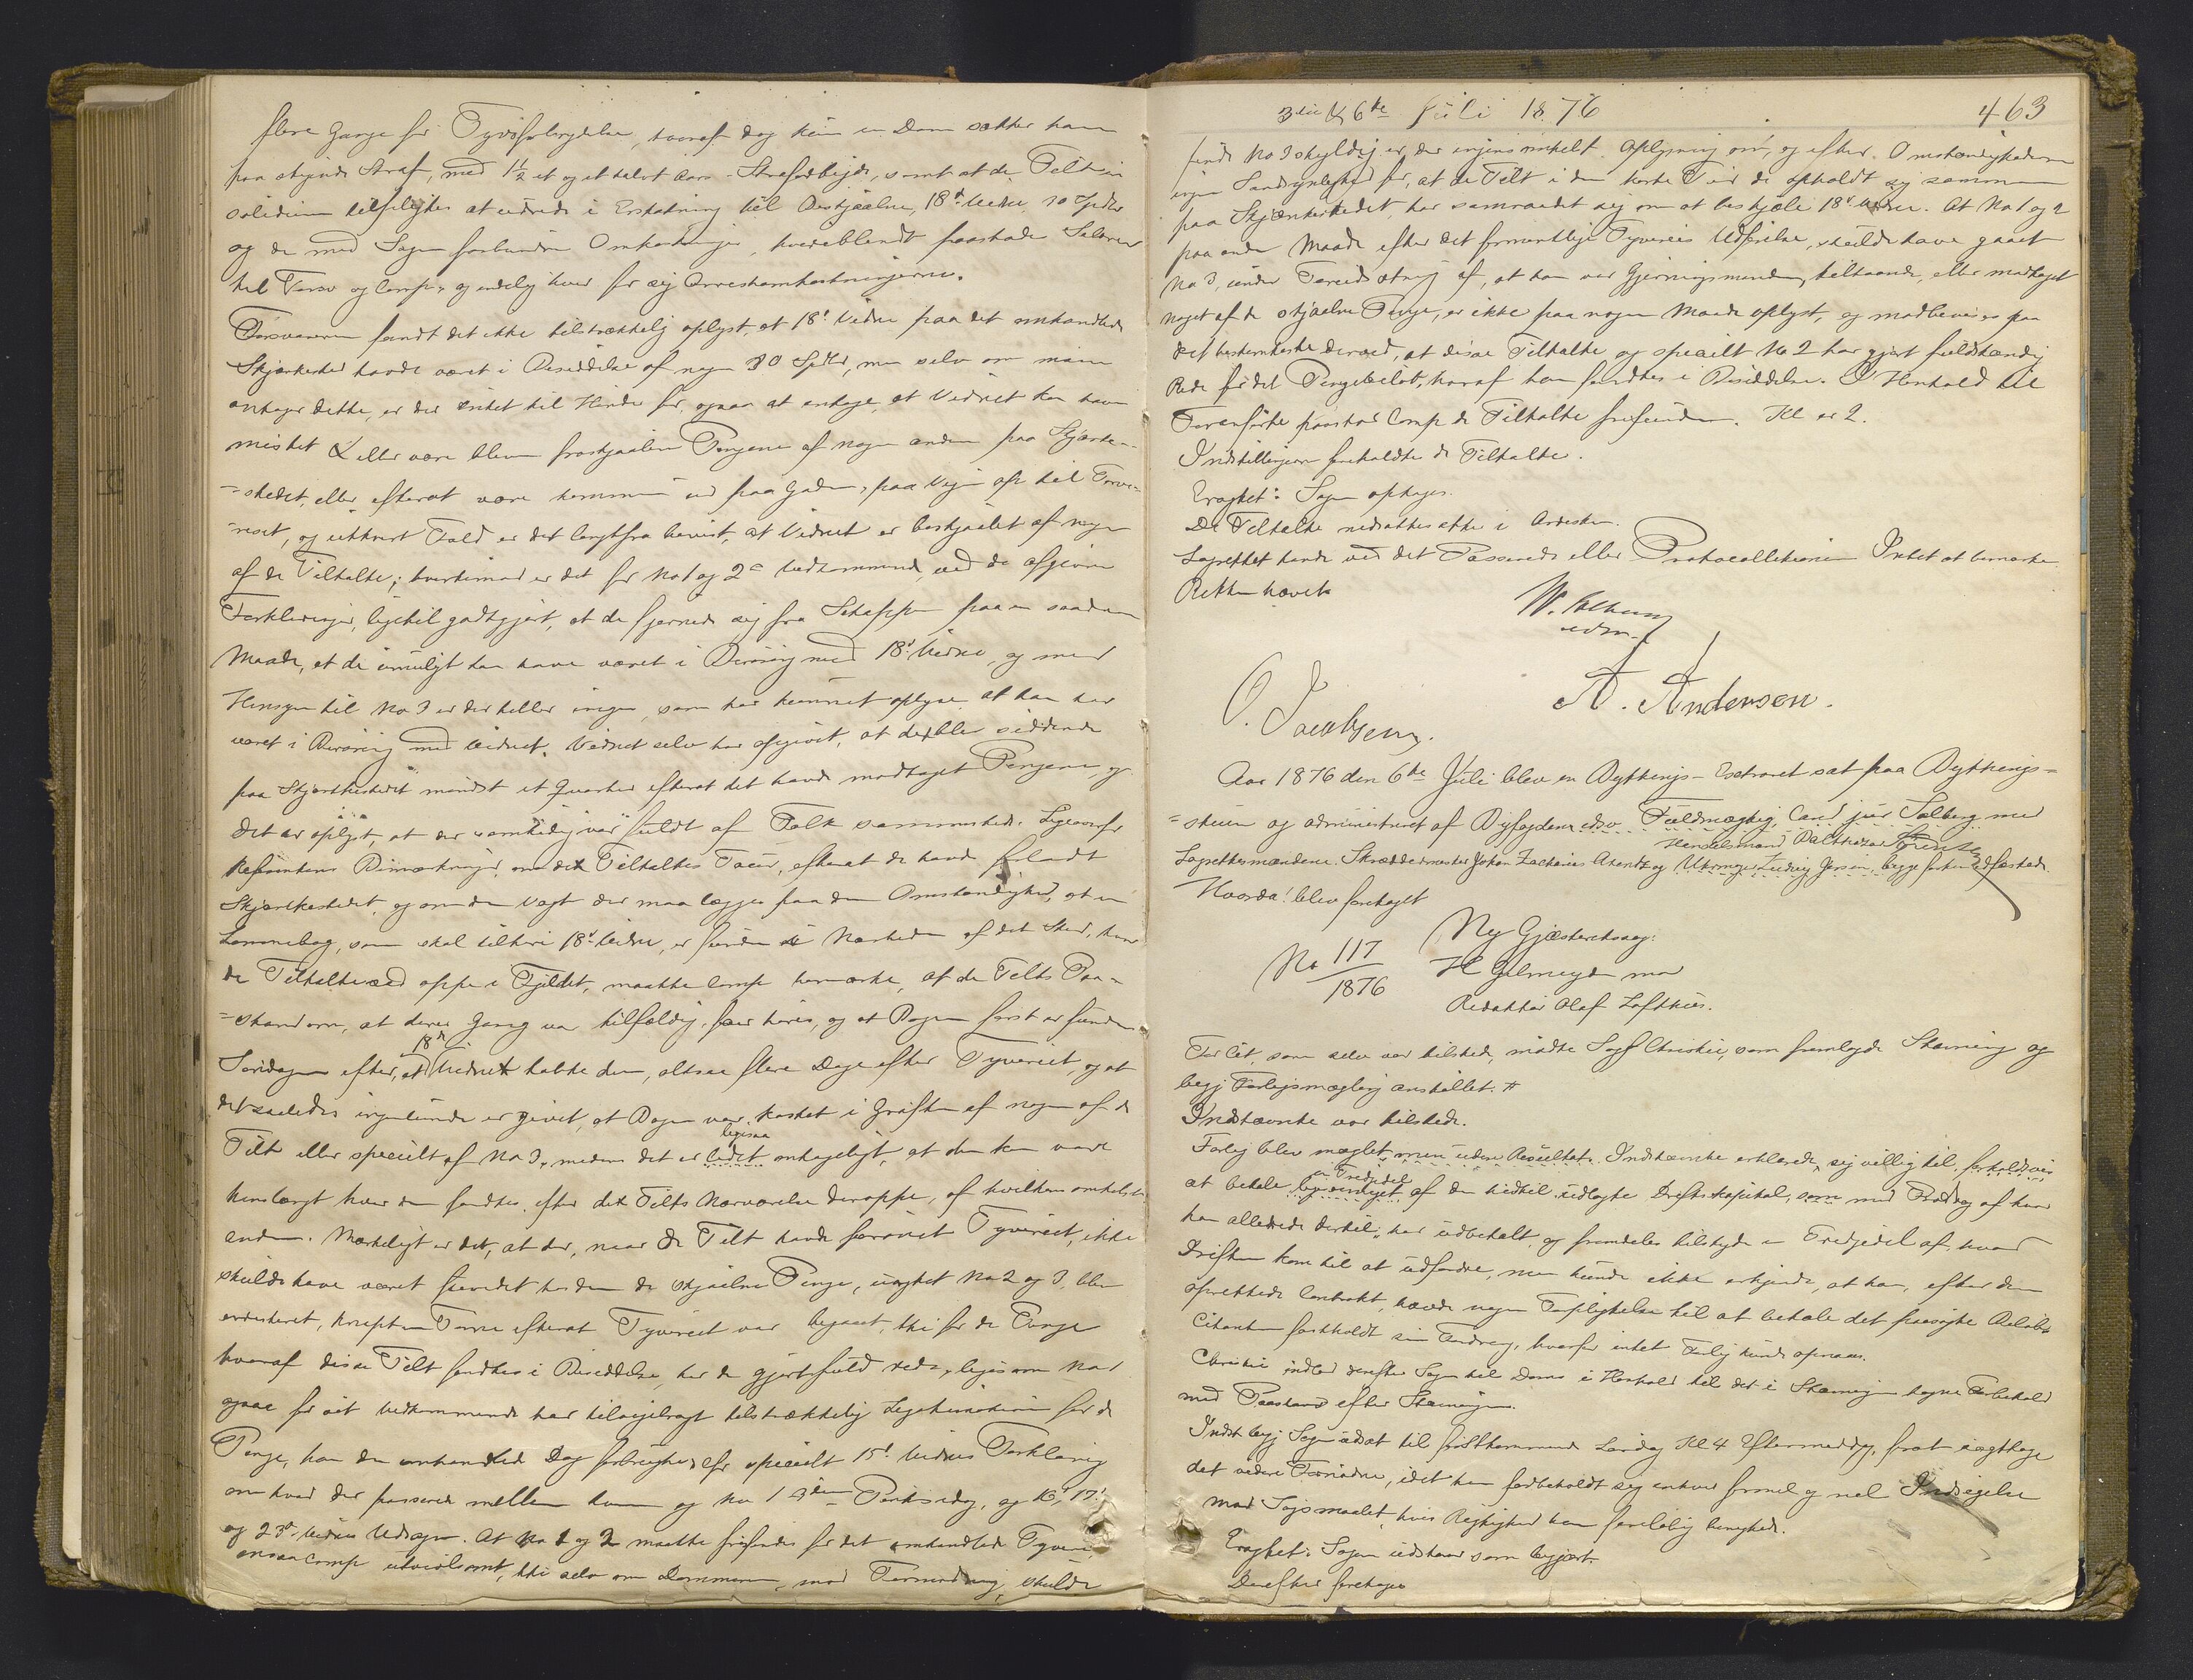 flere Gange for Tyvsforbrydelse, hvoraf dog kun en Dom sætter ham
paa stigende Straf, med 1½ et og et halvt Aars Strafarbeide, samt at de Teltn in
solidum tilpligtes at udrede i Erstatning til Bestjaalne, 18de Vidne 30 Spdlr
og de med Sagen forbundne Omkostninger, hvoriblandt Salærer
til Forsv og Comp., og endelig hver for sig Arrestomkostningerne.
Forsvareren fandt det ikke tilstrækkelig oplyst, at 18de Vidne paa det omhandlede
Skjænkested havde været i Besiddelse af nogen 30 Spdlr, men selv om man
antager dette, er der intet til Hinder for, ogsaa at antage, at Vidnet kan have
mistet eller være bleven frastjaalen Pengene af nogen anden paa Skjænke-
=stedet, eller efterat være kommen ud paa Gaden, paa Veien op til
og i ethvert Fald er det langtfra bevist, at Vidnet er bestjaalet af nogen
af de Tiltalte; tvertimod er det for No 1 og 2s Vedkommende, ved de afgivne
Forklaringer, ligetil godtgjort, at de fjernede sig fra paa en saadan
Maade, at de umuligt kan have været i Berøring med 18de Vidne, og med
Hensyn til No 3 er der heller ingen, som har kunnet oplyse at han har
været i Berøring med Vidnet. Vidnet selv har afgivet, at det blev siddende
paa Skjænkestedet mindst et Qvarter efterat det havde modtaget Pengene, og
det er oplyst, at der samtidig var fuldt af Folk sammesteds. Ligeoverfor
Referentens Bemærkninger om de Tiltaltes Tour, efterat de havde forladt
Skjænkestedet, og om den Vægt der maa lægges paa den Omstændighed, at en
Lommebog, som skal tilhøre 18de Vidne, er funden i Nærheden af det Sted, hvor
de Tiltalte oppe i Fjeldet, maatte Comp bemærke, at de Telts Paa-
=stand om, at deres Gang var tilfældig, og at Bogen først er funden
Søndagen efter, at 18de Vidnet tabte den, altsaa flere Dage efter Tyveriet, og at
det saaledes ingenlunde er givet, at Bogen var kastet i Grøften af nogen af de
Tiltt eller specielt af No 3, medens det er ligesaa lidet antageligt, at den kan være
henslængt hvor den fandtes, efter de Tiltts Nærværelse deroppe, af hvilkensomhelst
anden. Mærkeligt er det, at der, naar de Tiltt havde forøvet Tyveriet, ikke
skulde have været fundet hos dem de stjaalne Penge, uagtet No 2 og 3 blev
arresteret, knapt en Time efterat Tyveriet var begaaet, thi for de Penge
hvoraf disse Tiltt fandtes i Besiddelse, har de gjort fuld rede, ligesom No 1
ogsaa for sit Vedkommende har tilveiebragt tilstrækkelig Legitimation for de
Penge, han den omhandlede Dag forbrugte, cfr specielt 15de Vidnes Forklaring
om hvad der passerede mellem ham og No 1 3die Pintsedag, og 16de, 17de
og 23de Vidnes Udsagn. At No 1 og 2 maatte frifindes for det omhandlede Tyveri,
ansaa Comp utvivlsomt, thi selv om Dommeren, mod Formodning, skulde
3die & 6te Juli 1876
463
finde No 3 skyldig, er der ingensomhelst Oplysning om, og efter Omstændighederne
ingen Sandsynlighed for, at de Tiltt i den korte Tid de opholdt sig sammen
paa Skjænkestedet, har samraadet sig om at bestjæle 18de Vidne. At No 1 og 2
paa anden Maade efter det formentlige Tyveries Udførelse, skulde have gaaet
No 3, under Forudsætning af, at han var Gjerningsmanden, tilhaande, eller modtaget
noget af de stjaalne Penge, er ikke paa nogen Maade oplyst, og modbevises paa
det bestemteste derved, at disse Tiltalte, og specielt No 2 har gjort fuldstændig
Rede for det Pengebeløb, hvoraf han fandtes i Besiddelse. I Henhold til
Foranførte paastod Comp de Tiltalte frifundne. Kl er 2.
Indstillingen foreholdtes de Tiltalte.
Eragtet: Sagen optages.
De Tiltalte nedsattes atter i Arresten.
Lagrettet havde ved det Passerede eller Protocollationen Intet at bemærke.
Retten hævet
W. Solberg
edsv. f
O. Jacobsen.
A. Andersen.
Aar 1876 den 6te Juli blev en Bythings-Extraret sat paa Bythings-
=stuen og administreret af Byfogdens edsv Fuldmægtig Cand jur Solberg med
Handelsmand Balthazar
Lagrettesmændene Skræddermester Johan Zacharias Arentz og Uhrmager Ludvig Jersin, begge forhen edfæstede.
Hvorda! blev foretaget
No 117/1876
Ny Gjæsteretssag:
H Gelmuyden mod
Redaktør Olaf Lofthus.
For Cit, som selv var tilstede, mødte Sagf Christie, som fremlagde Stævning og
begj Forligsmægling anstillet.
Indstævnte var tilstede.
Forlig blev mæglet men uden Resultat. Indstævnte erklærede sig villig til forholdsvis
at betale en Trediedel af den hidtil udlagte Driftskapital, som med Fradrag af hvad
han allerede dertil har udbetalt, og fremdeles tilskyde en Trediedel af, hvad
Driften kom til at udfordre, men kunde ikke erkjende, at han, efter den
oprettede Contrakt, havde nogen Forpligtelse til at betale det paasøgte Beløb.
Citanten fastholdt sin Fordring, hvorfor intet Forlig kunde opnaaes.
Christie indlod derefter Sagen til Doms i Henhold til det i Stævningen tagne Forbehold
med Paastand efter Stævningen.
Indst begj Sagen udsat til førstkommende Lørdag Kl 4 Eftermiddag, for at iagttage
det videre Fornødne, idet han forbeholdt sig enhver formel og reel Indsigelse
mod Søgsmaalet, hvis Rigtighed han foreløbig benægtede.
Eragtet: Sagen udstaar som begjært.
Derefter foretoges